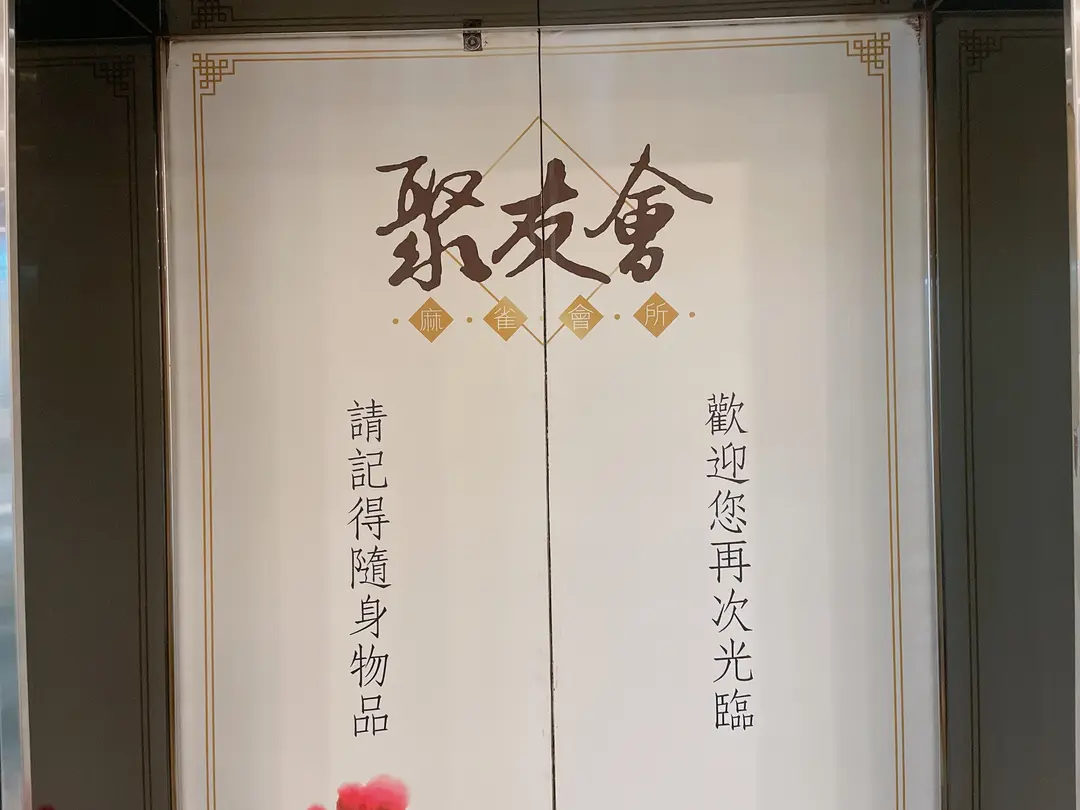 聚友會
麻雀會所
歡迎您再次光臨
請記得隨身物品